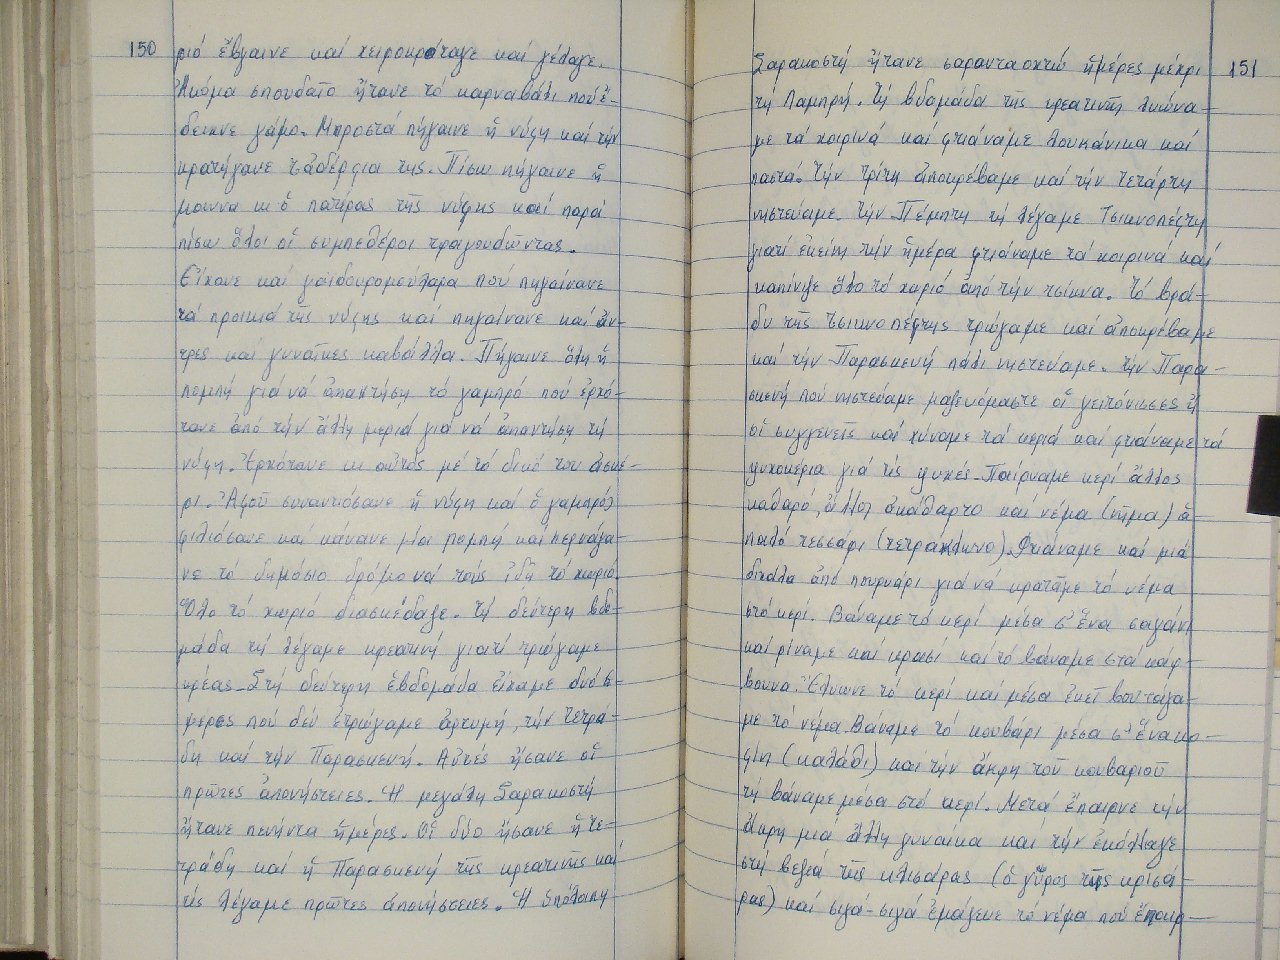 150
ριό ἔβγαινε καί χειροκρόταγε καί γέλαγε.
Ἀκόμα σπουδαῖο ἤτανε τό καρναβάλι πού ἔ-
δειχνε γάμο. Μπροστά πήγαινε ἡ νύφη καί τήν
κρατήγανε τἀδέρφια της. Πίσω πήγαινε ἡ
μάννα κι ὁ πατέρας τῆς νύφης καί παρά
πίσω ὅλοι οἱ συμπεθέροι τραγουδῶντας.
Εἴχανε καί γαιδουρομούλαρα πού πηγαίνανε
τά προικιά τῆς νύφης καί πηγαίνανε καί ἄν-
τρες καί γυναῖκες καβάλλα. Πήγαινε ὅλη ἡ
πομπή γιά νά ἀπαντήση τό γαμπρό πού ἐρχό-
τανε ἀπό τήν ἄλλη μεριά γιά νά ἀπαντήση τή
νύφη. Ἐρχότανε κι αὐτός μέ τό δικό του ἀσκέ-
ρι. Ἀφοῦ συναντιόσανε ἡ νύφη καί ὁ γαμπρός
φιλιόσανε καί κάνανε μία πομπή καί περνάγα-
νε τό δημόσιο δρόμο νά τούς ἰδῆ τό χωριό.
Ὅλο τό χωριό διασκέδαζε. Τή δεύτερη βδο-
μάδα τή λέγαμε κρεατινή γιατί τρώγαμε
κρέας. Στή δεύτερη ἑβδομάδα εἴχαμε δυό ἡ-
μέρες πού δέν ἐτρώγαμε ἀρτυμή, τήν Τετρά-
δη καί τήν Παρασκευή. Αὐτές ἤσανε οἱ
πρῶτες ἀπονήστειες. Ἡ μεγάλη Σαρακοστή
ἤτανε πενήντα ἡμέρες. Οἱ δύο ἤσανε ἡ Τε-
τράδη καί ἡ Παρασκευή τῆς κρεατινῆς καί
τίς λέγαμε πρῶτες ἀπονήστειες. Ἡ ὑπόλοιπη
151
Σαρακοστή ἤτανε σαρανταοχτώ ἡμέρες μέχρι
τή Λαμπρή. Τή βδομάδα τῆς κρεατινῆς λυώνα-
με τά χοιρινά καί φτιάναμε λουκάνικα καί
παστά. Τήν Τρίτη ἀποκρέβαμε καί τήν Τετάρτη
νηστεύαμε. Τήν Πέμπτη τή λέγαμε Τσικνοπέφτη
γιατί ἐκείνη τήν ἡμέρα φτιάναμε τά χοιρινά καί
κάπνιζε ὅλο τό χωριό ἀπό τήν τσίκνα. Τό βρά-
δυ τῆς Τσικνοπέφτης τρώγαμε καί ἀποκρέβαμε
καί τήν Παρασκευή πάλι νηστεύαμε. Τήν Παρα-
σκευή πού νηστεύαμε μαζευόμαστε οἱ γειτόνισσες ἤ
οἱ συγγενεῖς καί χύναμε τά κεριά καί φτιάναμε τά
ψυχοκέρια γιά τίς ψυχές. Παίρναμε κερί ἄλλος
καθαρό, ἄλλος ἀκάθαρτο καί νέμα (νῆμα) ἁ-
παλό τεσσάρι (τετράκλωνο). Φτιάναμε καί μιά
διχάλα ἀπό πουρνάρι γιά νά κρατᾶμε τό νέμα
στό κερί. Βάναμε τό κερί μέσα σ' ἕνα σαγάνι
καί ρίναμε καί κρασί καί τό βάναμε στά κάρ-
βουνα. Ἔλυωνε τό κερί καί μέσα ἐκεῖ βουτάγα-
με τό νέμα. Βάναμε τό κουβάρι μέσα σ' ἕνα κο-
φίνι (καλάθι) καί τήν ἄκρη τοῦ κουβαριοῦ
τή βάναμε μέσα στό κερί. Μετά ἔπαιρνε τήν
ἄκρη μιά ἄλλη γυναίκα καί τήν ἐκόλλαγε
στή βεζιά τῆς κλισάρας (ὁ γῦρος τῆς κρισά-
ρας) καί σιγά-σιγά ἐμάζευε τό νέμα πού ἔπαιρ-